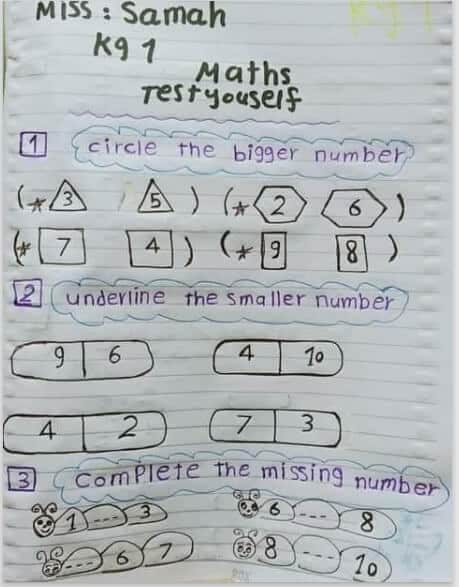 MISS : Samah
Kg 1
Maths
Test youself
1 circle the bigger number
(* 3 5 ) (* 2 6 )
(* 7 4 ) (* 9 8 )
2 underline the smaller number
9 6 4 10
4 2 7 3
3 Complete the missing number
1 --- 3 6 --- 8
--- 6 7 8 --- 10